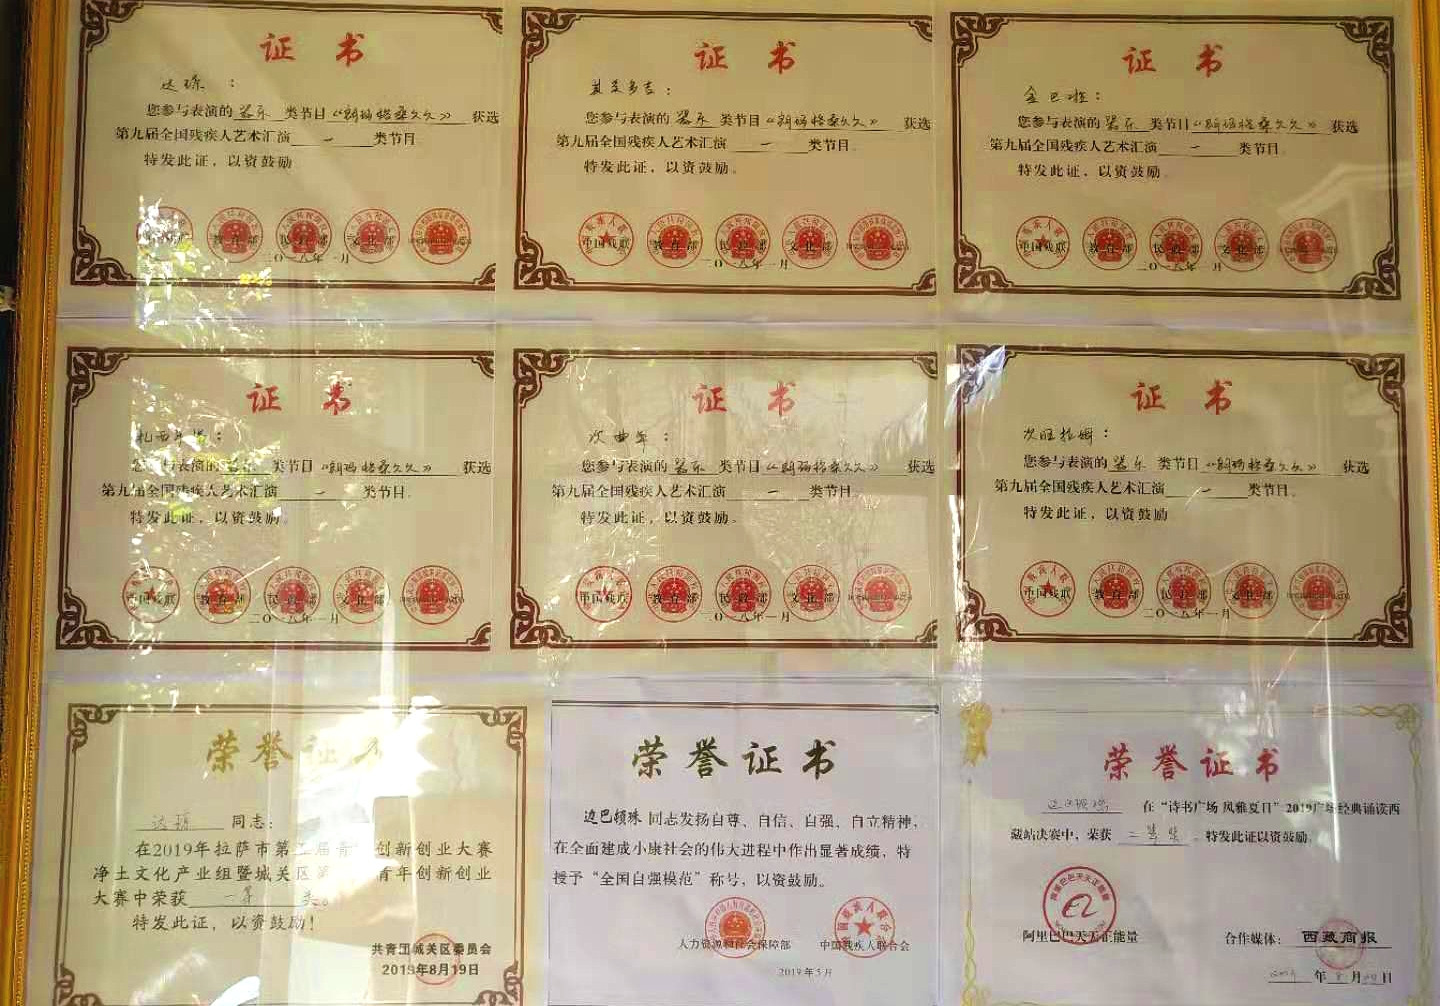 证书
达珍：
您参与表演的器乐类节目《朗玛格桑久久》获选
第九届全国残疾人艺术汇演一类节目
特发此证，以资鼓励
教育部 民政部 文化部
二〇一八年一月
证书
多吉：
您参与表演的器乐类节目《朗玛格桑久久》获选
第九届全国残疾人艺术汇演一类节目
特发此证，以资鼓励。
中国残联 教育部 民政部 文化部
二〇一八年一月
证书
金巴：
您参与表演的器乐类节目《朗玛格桑久久》获选
第九届全国残疾人艺术汇演一类节目
特发此证，以资鼓励。
中国残联 教育部 民政部 文化部
二〇一八年一月
证书
扎西：
您参与表演的器乐类节目《朗玛格桑久久》获选
第九届全国残疾人艺术汇演一类节目。
特发此证，以资鼓励。
中国残联 教育部 民政部 文化部
二〇一八年一月
证书
次曲：
您参与表演的器乐类节目《朗玛格桑久久》获选
第九届全国残疾人艺术汇演一类节目。
特发此证，以资鼓励。
中国残联 教育部 民政部 文化部
二〇一八年一月
证书
次旺拉姆：
您参与表演的器乐类节目《朗玛格桑久久》获选
第九届全国残疾人艺术汇演一类节目。
特发此证，以资鼓励
中国残联 教育部 民政部 文化部
二〇一八年一月
荣誉证
同志：
在2019年拉萨市第 届青 创新创业大赛
净土文化产业组暨城关区第 青年创新创业
大赛中荣获一等类。
特发此证，以资鼓励！
共青团城关区委员会
2019年8月19日
荣誉证书
边巴顿珠同志发扬自尊、自信、自强、自立精神，
在全面建成小康社会的伟大进程中作出显著成绩，特
授予“全国自强模范”称号，以资鼓励。
人力资源和社会保障部 中国残疾人联合会
2019年5月
荣誉证书
在“诗书广场 风雅夏日”2019广场经典诵读西
藏站决赛中，荣获二等奖，特发此证以资鼓励。
阿里巴巴天天正能量
合作媒体：西藏商报
年8月 日